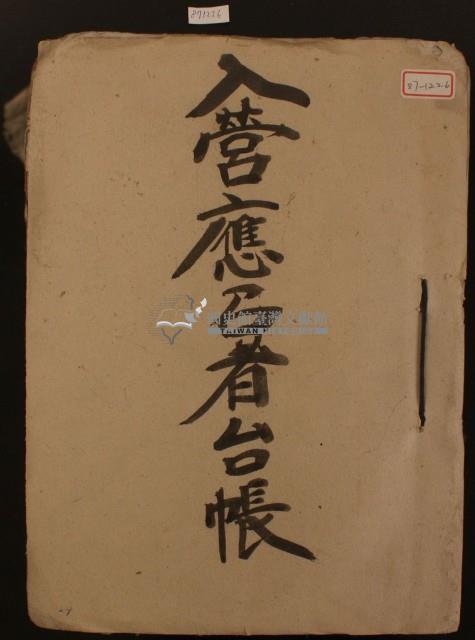 871226
87-1226
入營應召者台帳
國史館臺灣文獻館
TAIWAN HISTORICA